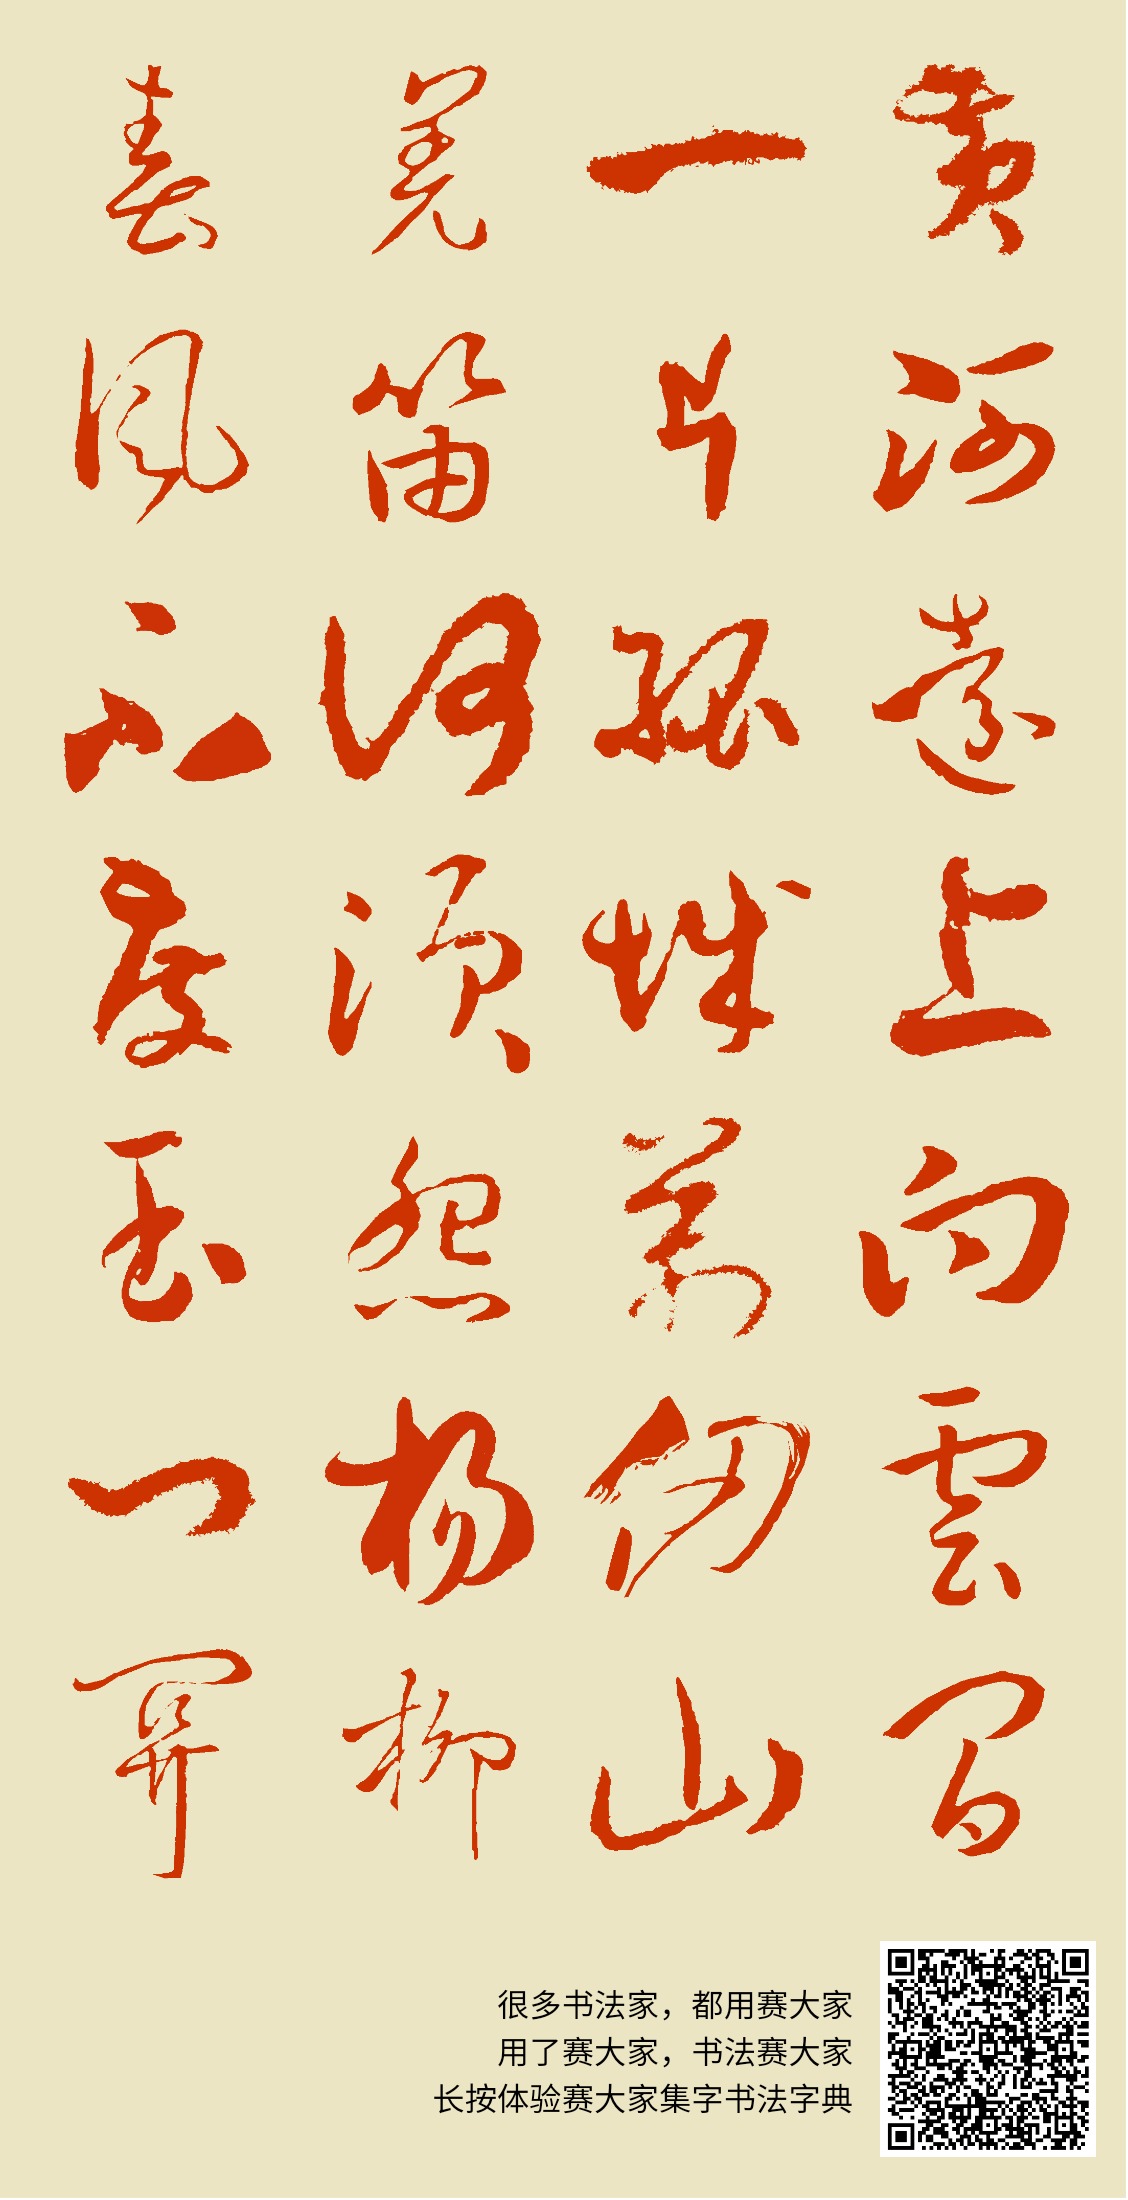 黄河遠上向雲間
一片孤城萬仞山
羌笛何須怨楊柳
春風不度玉門關
很多书法家，都用赛大家
用了赛大家，书法赛大家
长按体验赛大家集字书法字典